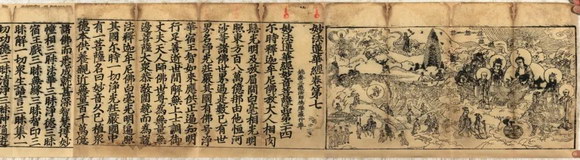 妙法蓮華經卷第七
妙法蓮華經妙音菩薩品第二十四
尒時釋迦牟尼佛放大人相肉
髻光明及放眉間白毫相光遍
照東方百八萬億那由他恒河
沙等諸佛世界過是數已有世
界名淨光莊嚴其國有佛号淨
華宿王智如來應供正遍知明
行足善逝世間解無上士調御
丈夫天人師佛世尊爲無量無
邊菩薩大衆恭敬圍繞而爲説
法釋迦牟尼佛白毫光明遍照
其國尒時一切淨光莊嚴國中
有一菩薩名曰妙音久已植衆
德本供養親近無量百千萬億
諸佛而悉成就甚深智慧得妙
幢相三昧法華三昧淨德三昧
宿王戲三昧無緣三昧智印三
昧解一切衆生語言三昧集一
切功德三昧清淨三昧神通遊